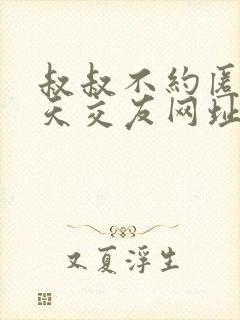 叔叔不約匿
天交友网址
又夏浮生